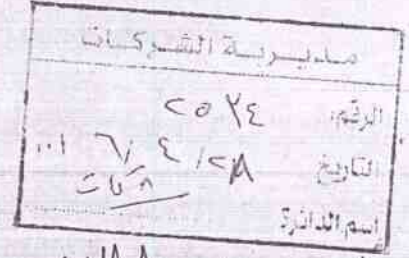 مديرية الشركات
الرقم: ٢٥٣٤
التاريخ ٢٨/ ٤ /
اسم الدائرة